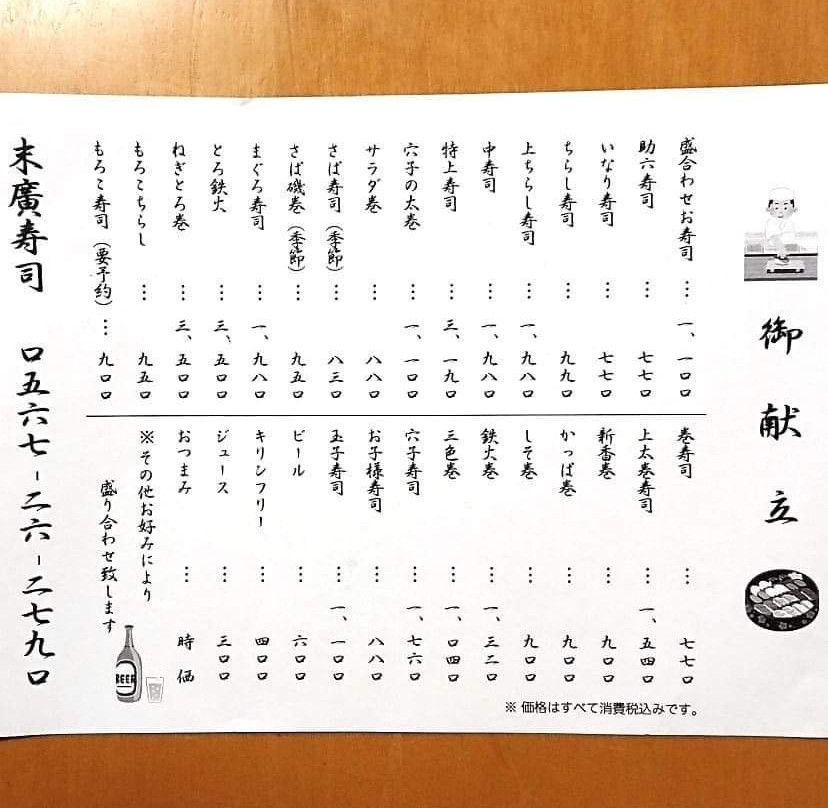 御献立
盛合わせお寿司 … 一、一〇〇
助六寿司 … 七七〇
いなり寿司 … 七七〇
ちらし寿司 … 九九〇
上ちらし寿司 … 一、九八〇
中寿司 … 一、九八〇
特上寿司 … 三、一九〇
穴子の太巻 … 一、一〇〇
サラダ巻 … 八八〇
さば寿司（季節） … 八三〇
さば磯巻（季節） … 九五〇
まぐろ寿司 … 一、九八〇
とろ鉄火 … 三、五〇〇
ねぎとろ巻 … 三、五〇〇
もろこちらし … 九五〇
もろこ寿司（要予約） … 九〇〇
巻寿司 … 七七〇
上太巻寿司 … 一、五四〇
新香巻 … 九〇〇
かっぱ巻 … 九〇〇
しそ巻 … 九〇〇
鉄火巻 … 一、三二〇
三色巻 … 一、〇四〇
穴子寿司 … 一、七六〇
お子様寿司 … 八八〇
玉子寿司 … 一、一〇〇
ビール … 六〇〇
キリンフリー … 四〇〇
ジュース … 三〇〇
おつまみ … 時価
※その他お好みにより
盛り合わせ致します
BEER
末廣寿司 〇五六七-二六-二七九〇
※ 価格はすべて消費税込みです。